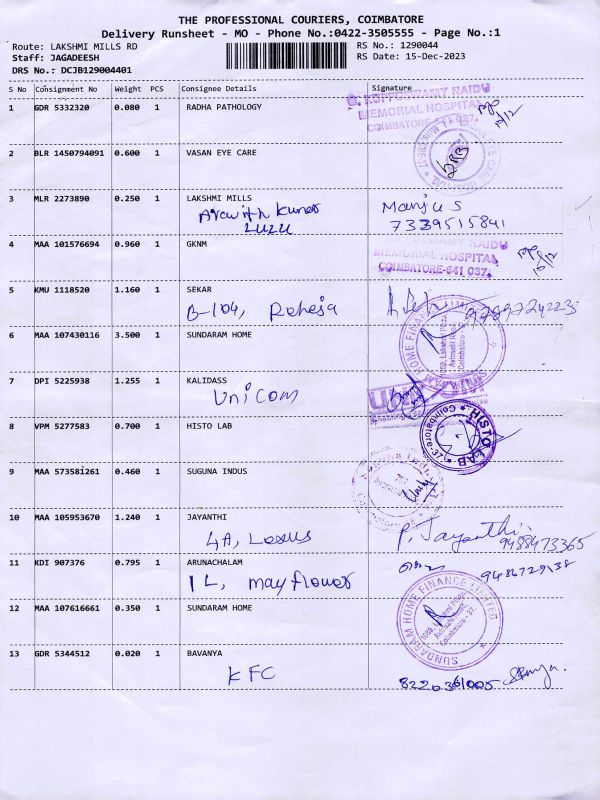 THE PROFESSIONAL COURIERS, COIMBATORE
Delivery Runsheet - MO - Phone No.:0422-3505555 - Page No.:1
Route: LAKSHMI MILLS RD
RS No.: 1290044
Staff: JAGADEESH
RS Date: 15-Dec-2023
DRS No.: DCJB129004401
S No Consignment No Weight PCS Consignee Details Signature
1 GDR 5332320 0.080 1 RADHA PATHOLOGY
G. KUPPUSWAMY NAIDU
MEMORIAL HOSPITAL
COIMBATORE-641 037.
2 BLR 1450794091 0.600 1 VASAN EYE CARE
3 MLR 2273890 0.250 1 LAKSHMI MILLS
Aravinth Kumar
Manju S
7339515841
4 MAA 101576694 0.960 1 GKNM
KUPPUSWAMY NAIDU
MEMORIAL HOSPITAL
COIMBATORE-641 037.
15/12
5 KMU 1118520 1.160 1 SEKAR
B-104, Raheja
9789724223
6 MAA 107430116 3.500 1 SUNDARAM HOME
SUNDARAM HOME FINANCE LIMITED
1089, Lakshmi Plaza,
Avinashi Road,
Coimbatore
7 DPI 5225938 1.255 1 KALIDASS
Unicom
8 VPM 5277583 0.700 1 HISTO LAB
HISTO LAB
Coimbatore-37
9 MAA 573581261 0.460 1 SUGUNA INDUS
10 MAA 105953670 1.240 1 JAYANTHI
4A, Lexus
P. Jayanthi
9488473365
11 KDI 907376 0.795 1 ARUNACHALAM
1L, mayflower
9486729138
12 MAA 107616661 0.350 1 SUNDARAM HOME
SUNDARAM HOME FINANCE LIMITED
1089, Lakshmi Plaza,
Avinashi Road,
Coimbatore - 37
13 GDR 5344512 0.020 1 BAVANYA
KFC
8220361005